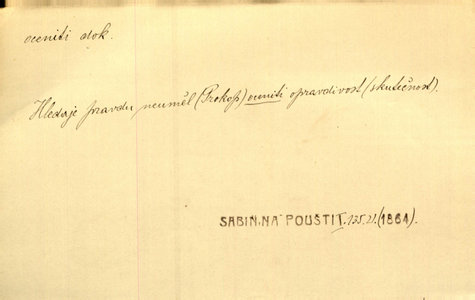 oceniti dok.
Hledaje pravdu neuměl (Prokop) ocuniti opravdivost (skutečnost).
SABIN. NA POUŠTI I, 135, 21. (1864).